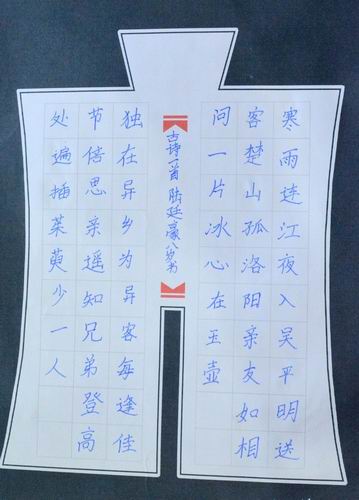 寒雨连江夜入吴平明送
客楚山孤洛阳亲友如相
问一片冰心在玉壶
古诗一首 陆廷豪八岁书
独在异乡为异客每逢佳
节倍思亲遥知兄弟登高
处遍插茱萸少一人